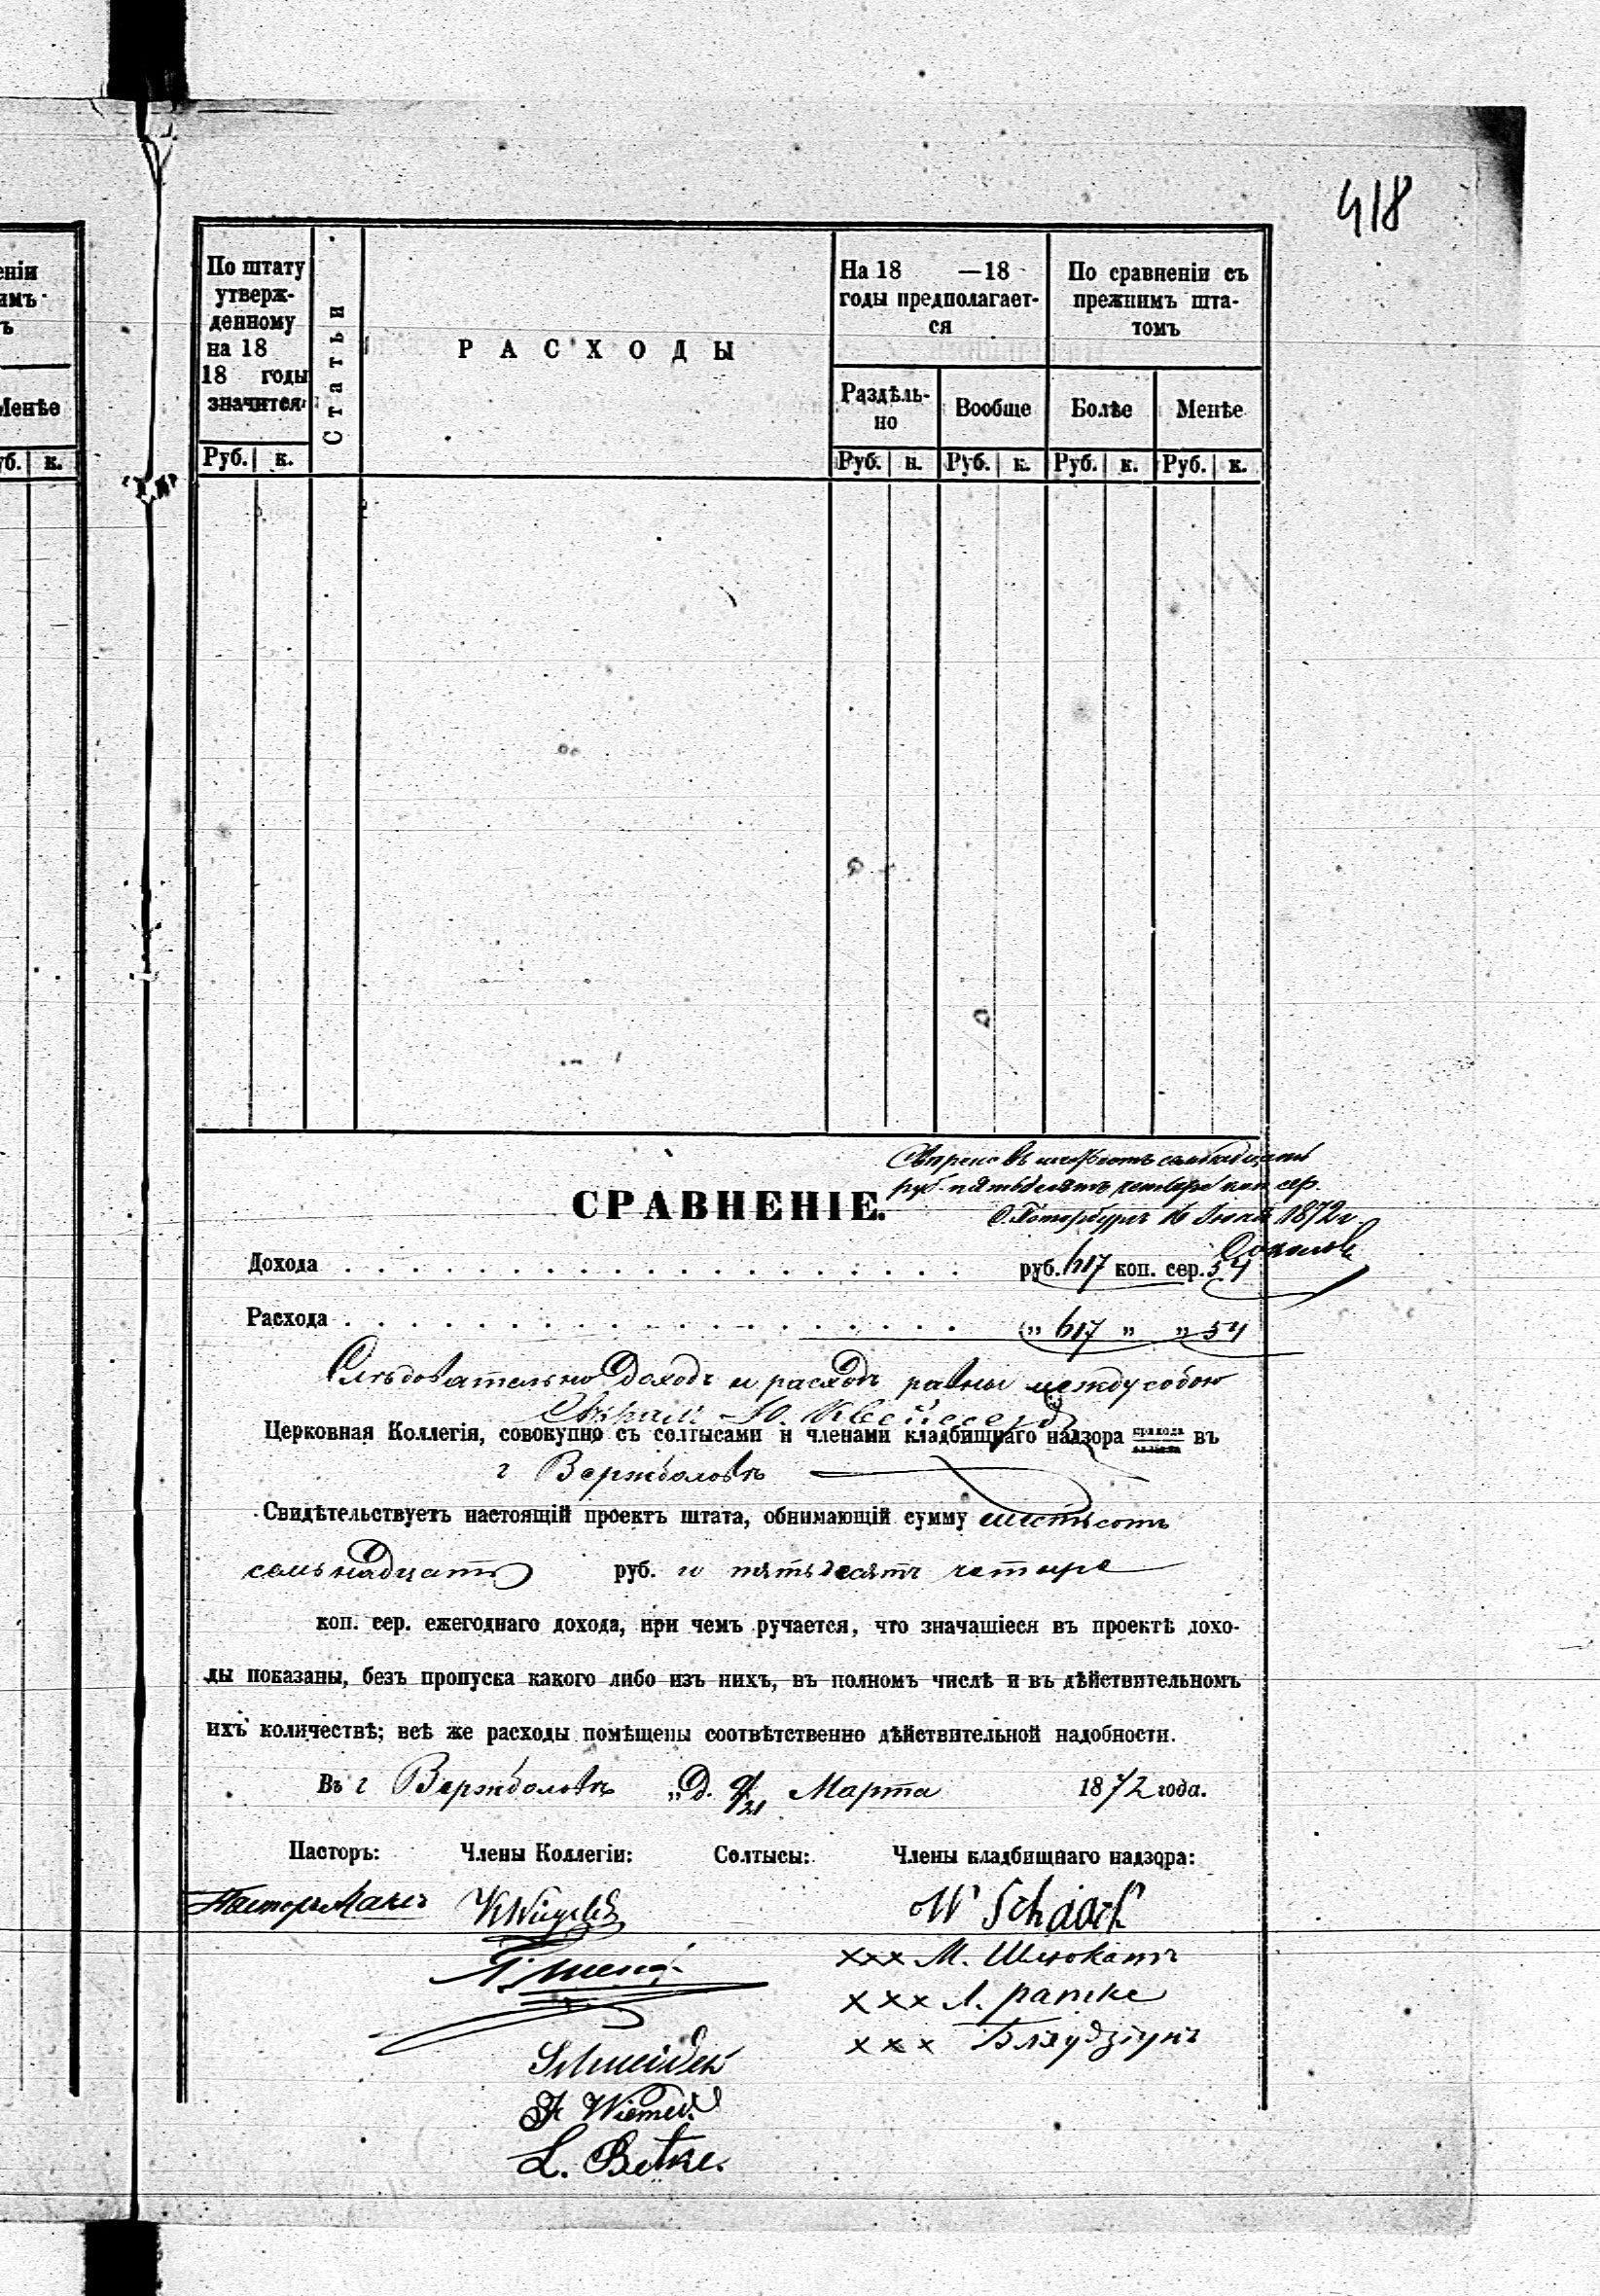 418
еніи
имъ
ъ
Менѣе
уб. к.
По штату
утверж-
денному
на 18
18 годы
значится
Руб. к.
Статьи
РАСХОДЫ
На 18 —18
годы предполагает-
ся
По сравненіи съ
прежнимъ шта-
томъ
Раздѣль-
но
Вообще
Болѣе
Менѣе
Руб. к. Руб. к. Руб. к. Руб. к.
въ шестьсотъ семнадцать
руб. пятьдесятъ четыре коп. сер.
16 1872 г.
СРАВНЕНІЕ.
Дохода . . . . . . . . . . . . . . . . . . . руб. 617 коп. сер. 54
Расхода . . . . . . . . . . . . . . . . . . . „ 617 „ „ 54
Слѣдовательно доходъ и расходъ равны между собою
Церковная Коллегія, совокупно съ солтысами и членами кладбищнаго надзора прихода въ
г Вержболовѣ
Свидѣтельствуетъ настоящій проектъ штата, обнимающій сумму шестьсотъ
семьнадцать руб. и пятьдесятъ четыре
коп. сер. ежегоднаго дохода, при чемъ ручается, что значащіеся въ проектѣ дохо-
ды показаны, безъ пропуска какого либо изъ нихъ, въ полномъ числѣ и въ дѣйствительномъ
ихъ количествѣ; всѣ же расходы помѣщены соотвѣтственно дѣйствительной надобности.
Въ г Вержболовѣ „Д. 9/21 Марта 1872 года.
Пасторъ: Члены Коллегіи: Солтысы: Члены кладбищнаго надзора:
Пасторъ
W Schaak
xxx М.
xxx Л. Ратке
xxx
Schneider
L. Betke.